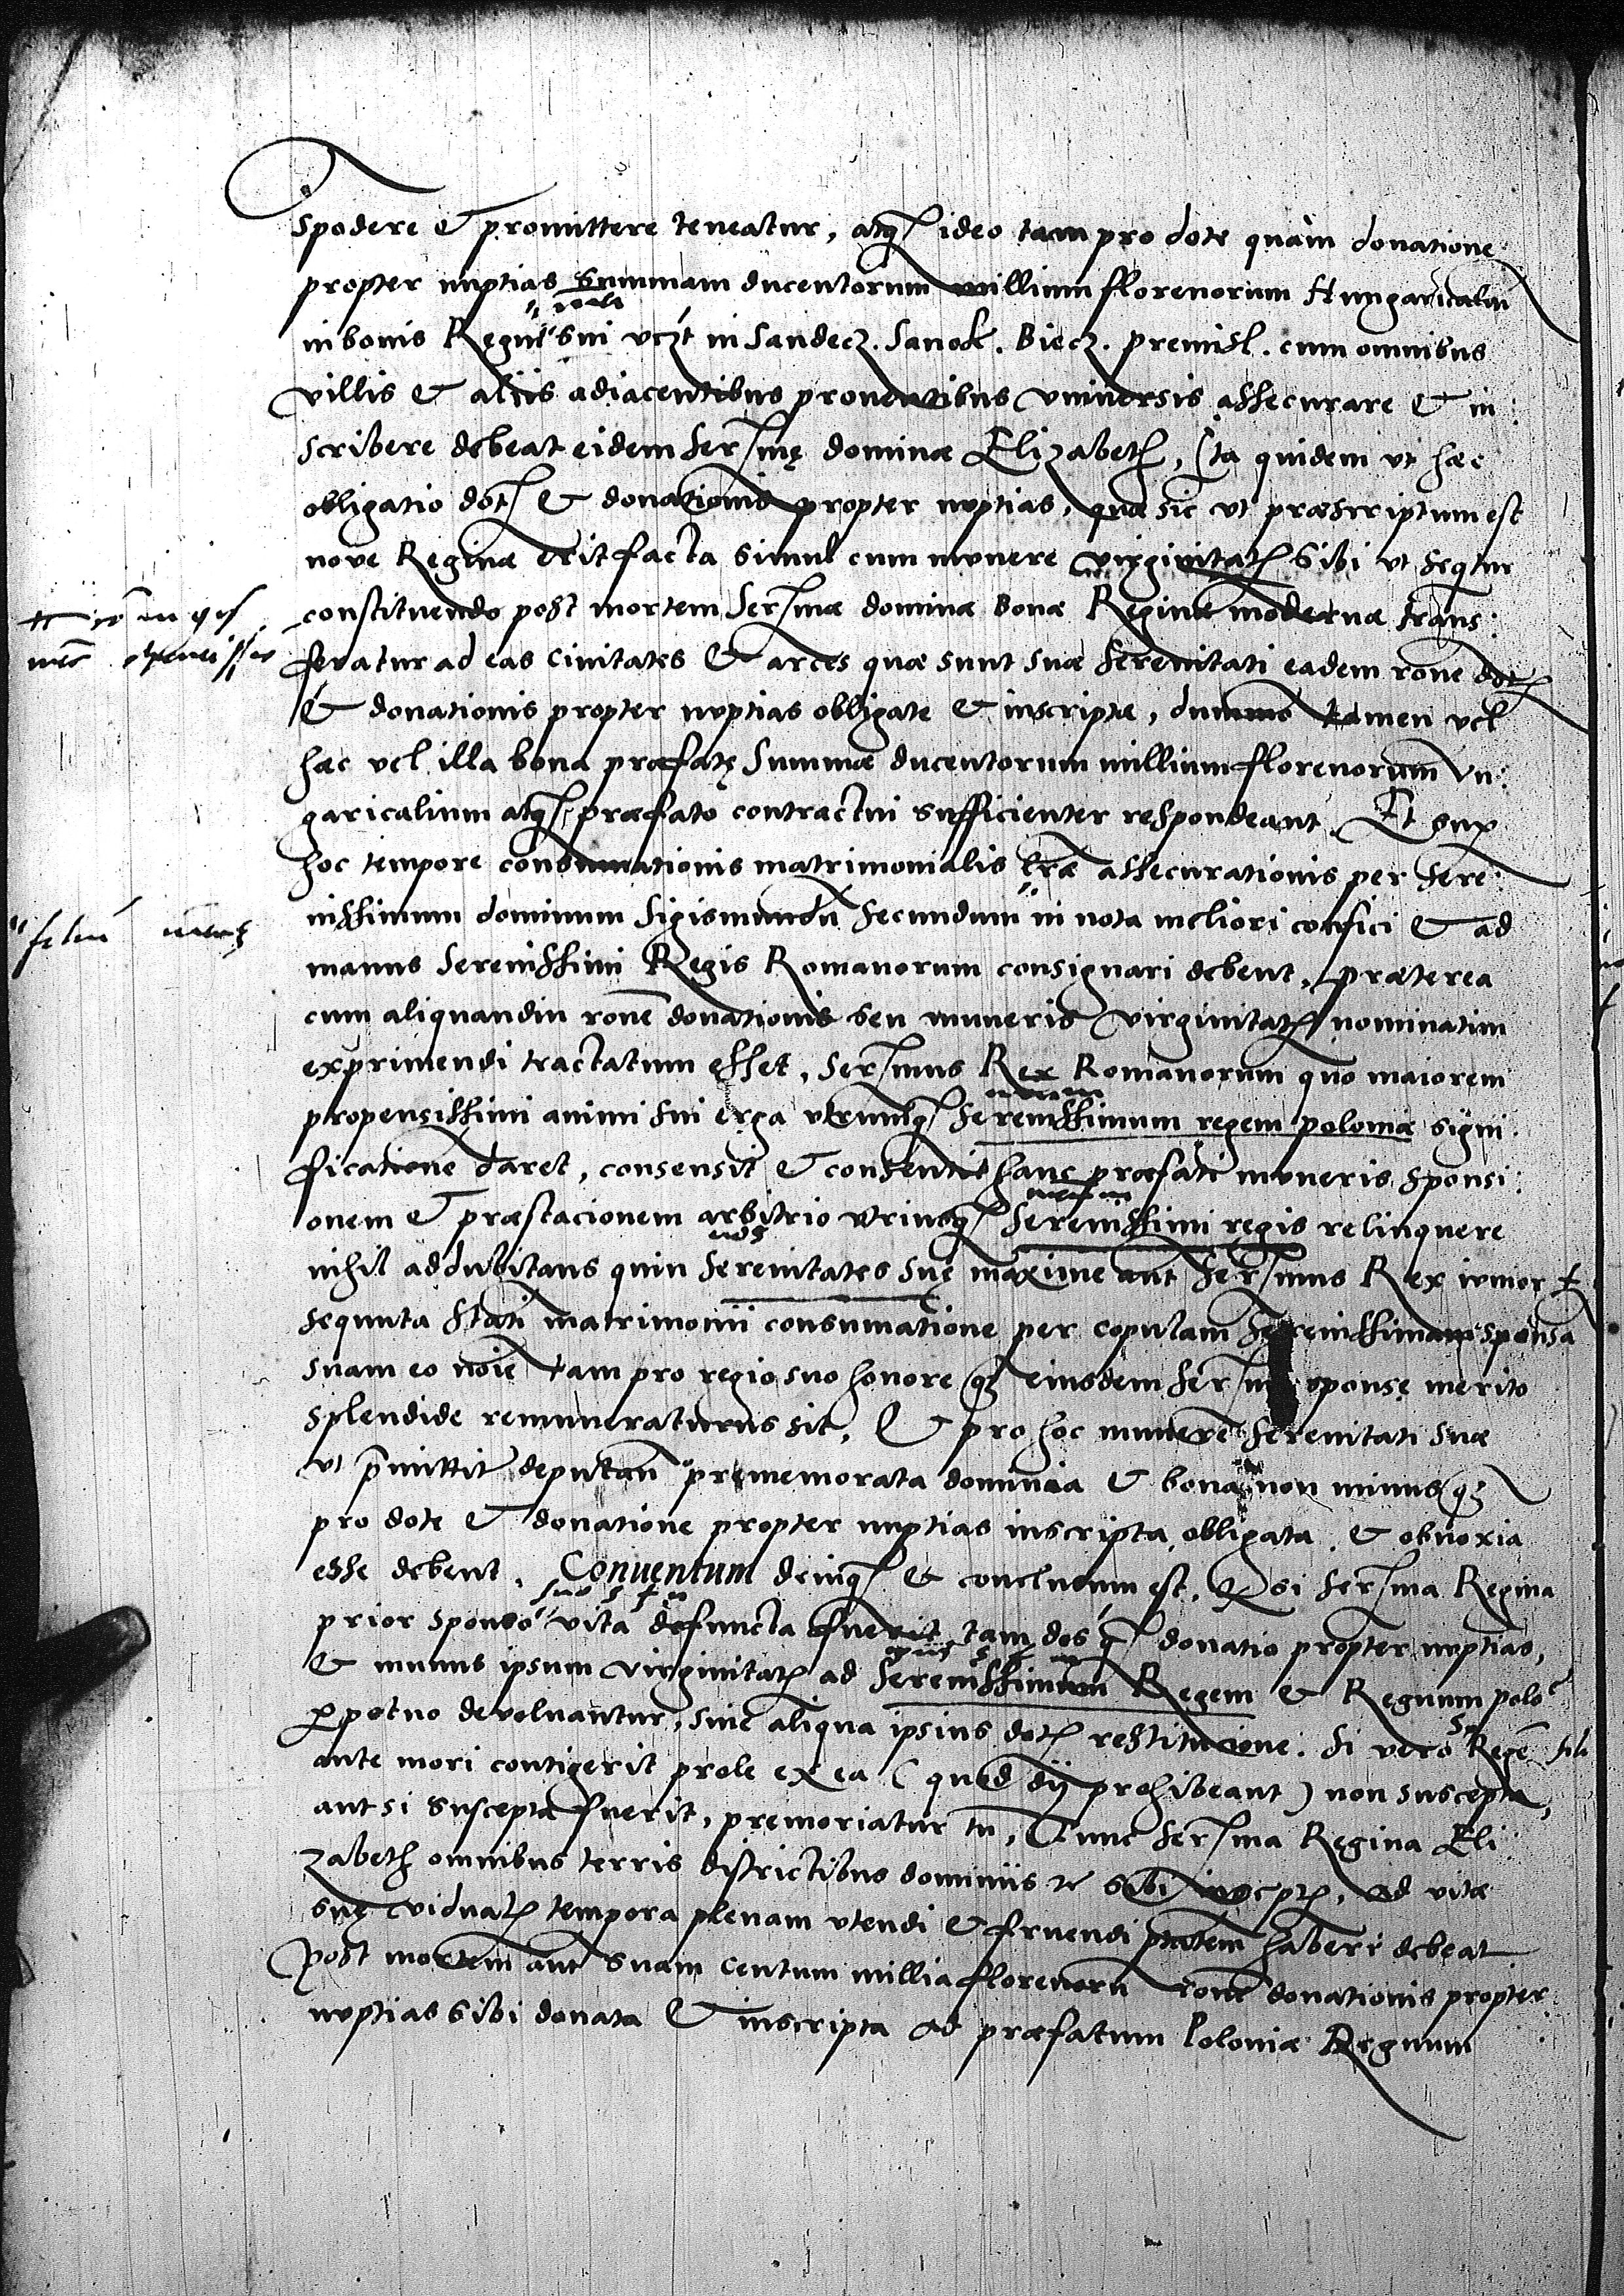 spodere & promittere teneatur, atq3 ideo tam pro dote quàm donatione
propter nuptias Summam ducentorum millium florenorum Hungaricaliu
in bonis Regni sui vczt in Sandecz. Sanok. Biecz. premisl. cum omnibus
villis & aliis adiacentibus prouentibus vniuersis assecurare & in:
scribere debeat eidem Sermę dominæ Elizabeth, Ita quidem vt hæc
obligatio dot[is] & donationis propter nuptias, quæ sic vt præscriptum est
nove Reginæ erit facta simul cum munere virginitat[is] sibi vt seqtur
constituendo post mortem Sermæ dominæ Bonæ Reginæ modernæ trans:
feratur ad eas Ciuitates & arces quæ sunt suæ Serenitati eadem rone dot[is]
& donationis propter nuptias obligate & inscriptæ, dummo tamen vel
hæc vel illa bona præfatę Summæ ducentorum millium florenorum Vn:
garicalium atq3 præfato contractui sufficienter respondeant. Et sup
hoc tempore consumationis matrimonialis lræ assecurationis per Sere:
nissimum dominum Sigismundu Secundum in nota meliori confici & ad
manus Serenissimi Regis Romanorum consignari debent, præterea
cum aliquandiu rone donationis seu muneris virginitat[is] nominatim
exprimendi tractatum esset, Sermus Rex Romanorum quo maiorem
propensissimi animi sui erga vtrumq3 Serenissimum regem poloniæ signi
ficatione daret, consensit & consentit hanc præfati muneris sponsi:
onem & præstacionem arbitrio vtriusq3 Serenissimi regis relinquere
nihil addubitans quin Serenitates suę maxime aut Sermus Rex iunior
sequuta stati matrimonii consumatione per copulam Serenissimam sponsa
suam eo noie tam pro regio suo honore q3 eiusdem Serm sponsę merito
splendide remuneraturus sit, & pro hoc munere Serenitati suæ
vt pmittit deputan prememorata dominia & bona non minus q3
pro dote & donatione propter nuptias inscripta, obligata, & obnoxia
esse debent. Conuentum deniq3 & conclusum est, Q si Serma Regina
prior sponso vita defuncta fuerit tam dos q3 donatio propter nuptias,
& munus ipsum virginitat[is] ad Serenissimum Regem & Regnum polo
ppetuo deuoluantur, sine aliqua ipsius dot[is] restitucione. Si vero Rege
ante mori contigerit prole ex ea ( quod dij prohibeant ) non suscepta,
aut si suscepta fuerit, premoriatur tn, Tunc Serma Regina Eli
zabeth omnibus terris districtibus dominiis &c sibi inscpt[is], ad vitæ
suę viduat[is] tempora plenam vtendi & fruendi ptatem haberi debeat
Post mortem aut suam Centum millia florenoru rone donationis propter
nuptias sibi donata & inscripta ad præfatum Poloniæ Regnum